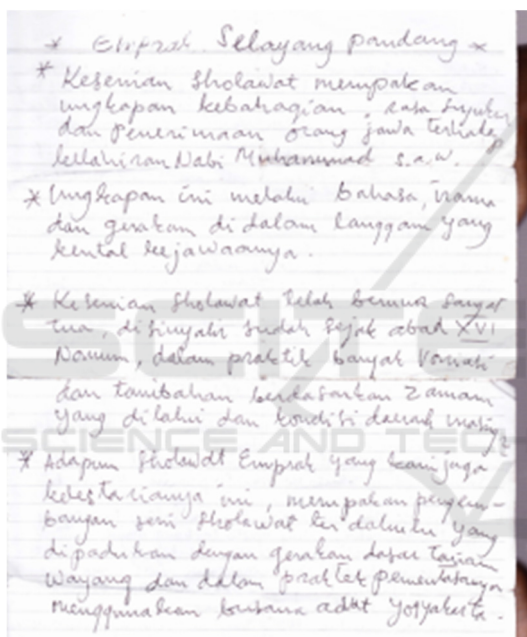 * Emprak Selayang pandang *
* Kesenian Sholawat merupakan
ungkapan kebahagian, rasa syukur
dan penerimaan orang jawa terhadap
kellahiran Nabi Muhammad s.a.w.
* Ungkapan ini melalui bahasa, irama
dan gerakan di dalam langgam yang
kental kejawaannya.
* Kesenian Sholawat telah berumur sangat
tua, disinyalir sudah sejak abad XVI
Namun, dalam praktik banyak Variasi
dan tambahan berdasarkan zaman
yang dilalui dan kondisi daerah masing2
* Adapun Sholawat Emprak yang kami jaga
kelestariannya ini, merupakan pengem-
bangan seni Sholawat ter dahulu yang
dipadukan dengan gerakan dasar tarian
Wayang dan dalam praktek pementasanya
menggunakan busana adat Yogyakarta.
SCITE
SCIENCE AND TEC